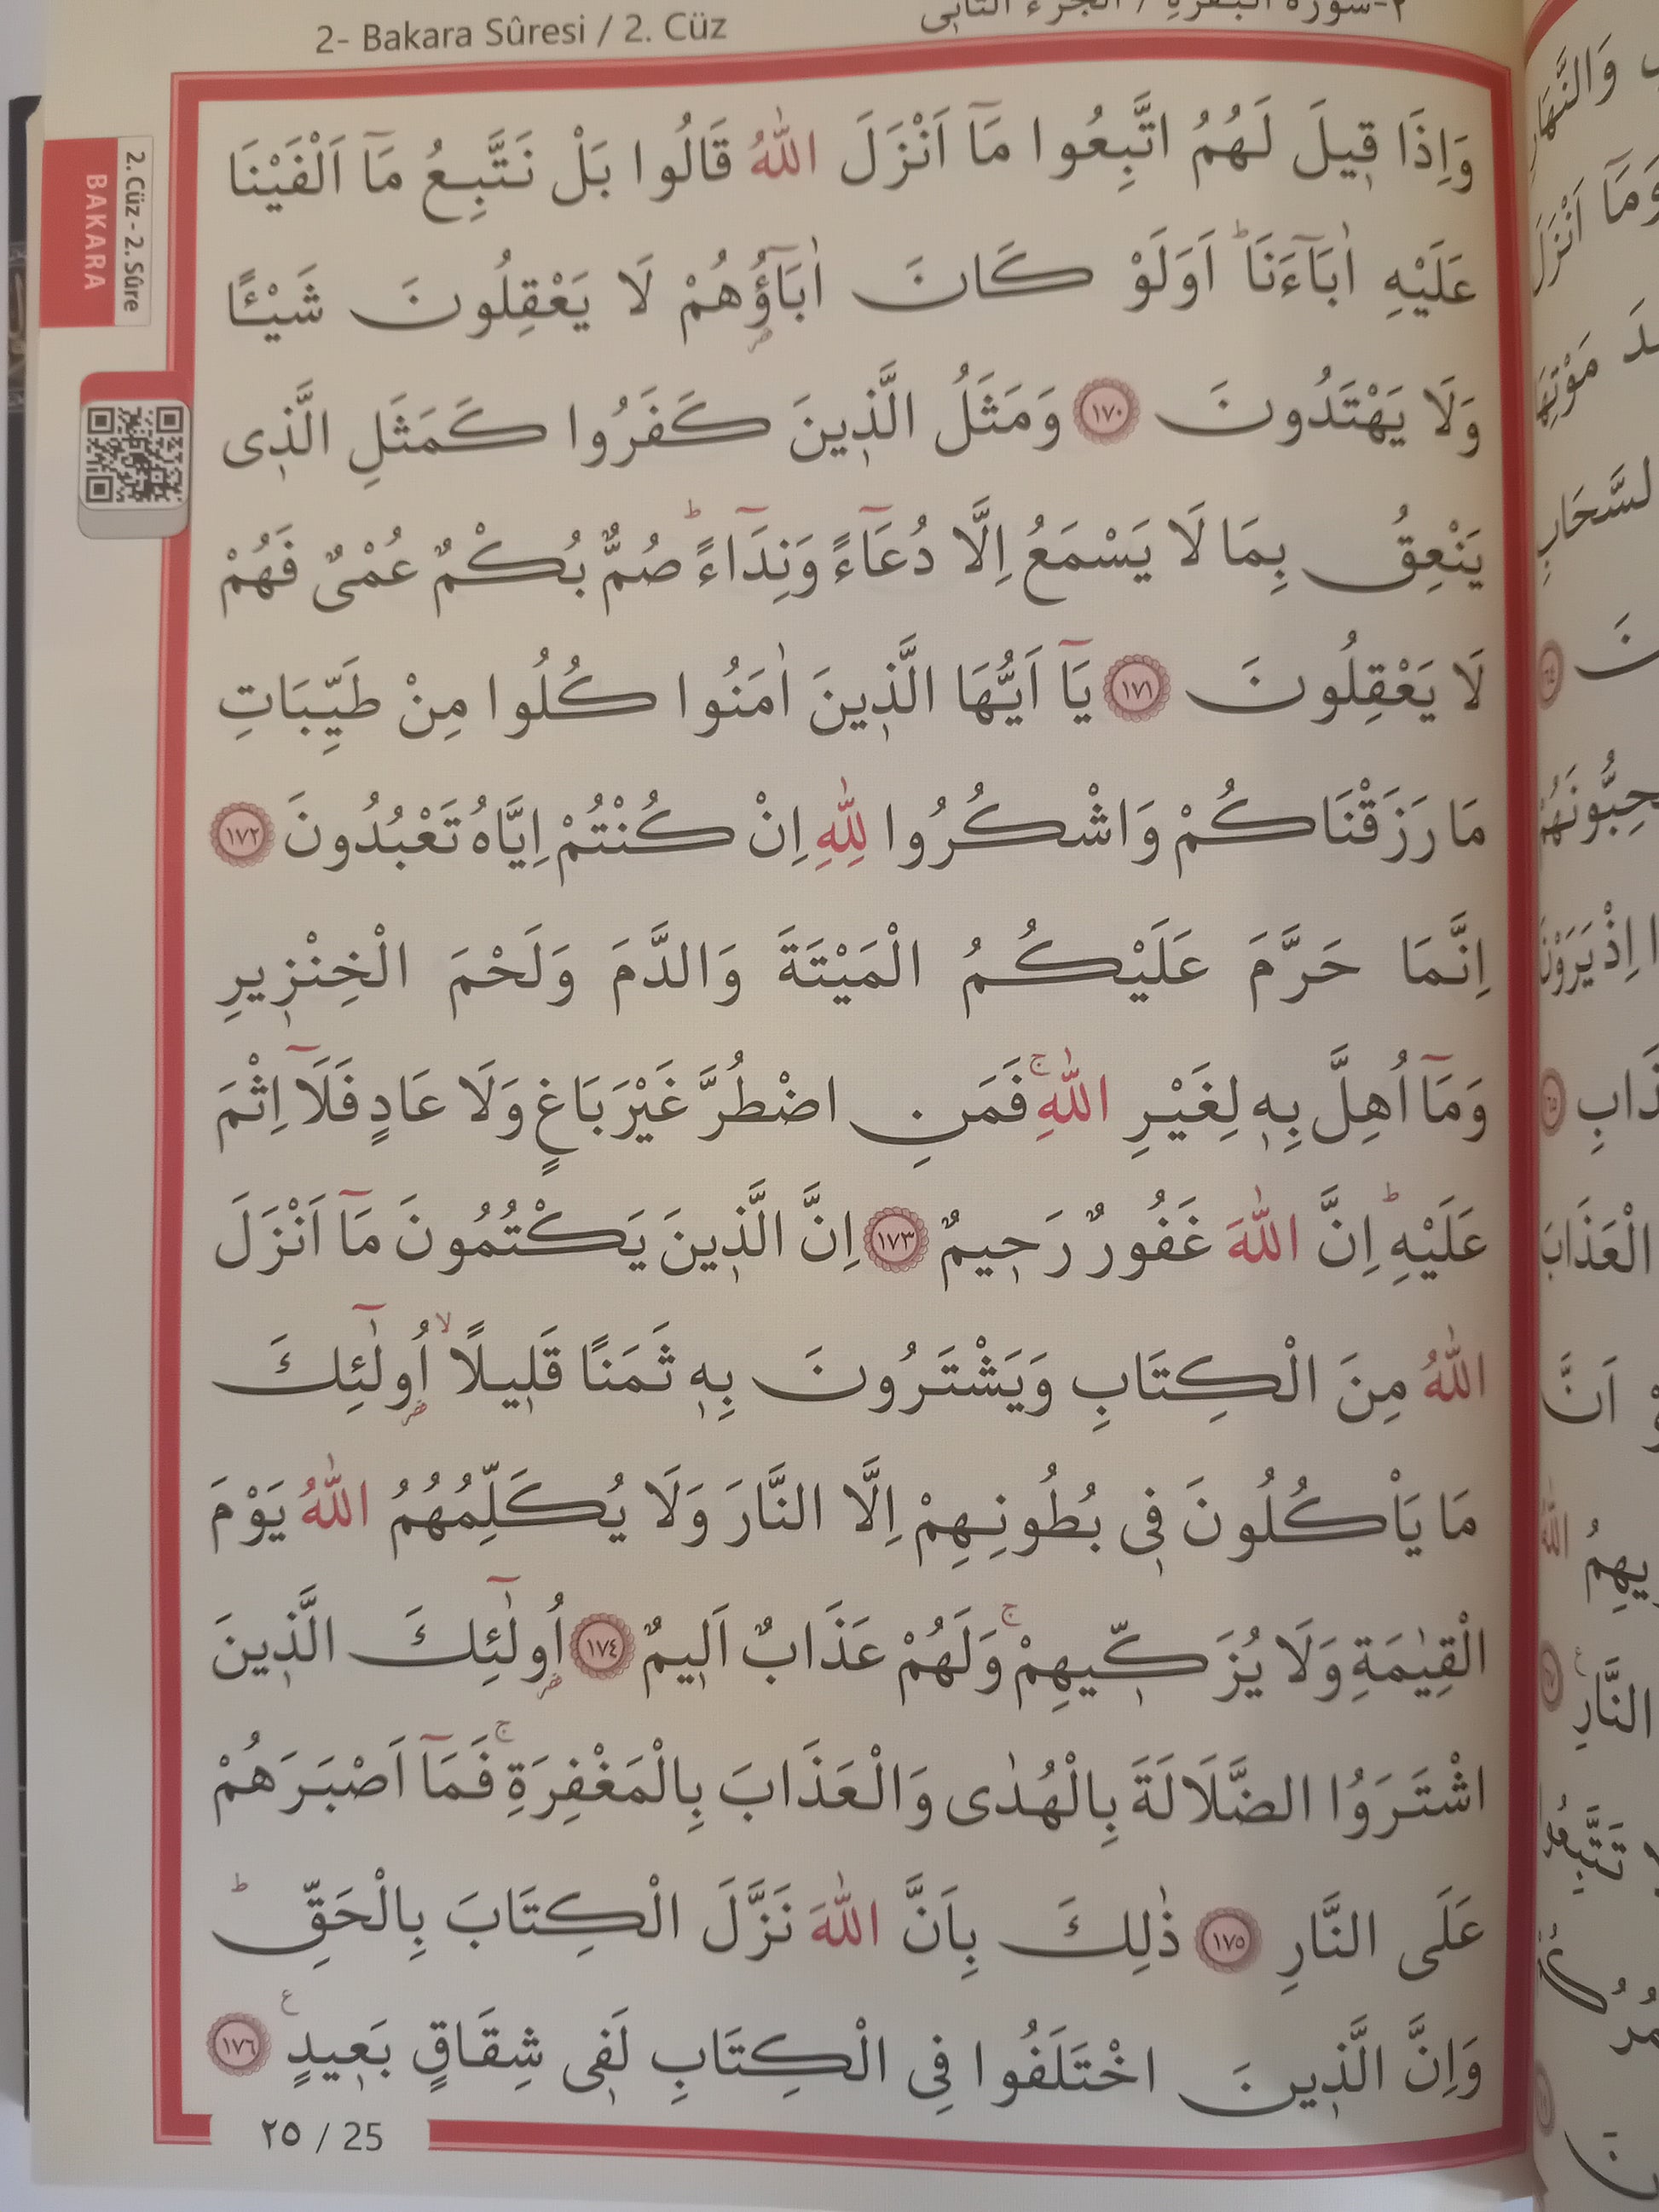 2- Bakara Sûresi / 2. Cüz
٢-سورة البقرة / الجزء الثاني
2. Cüz - 2. Sûre
BAKARA
وَاِذَا قٖيلَ لَهُمُ اتَّبِعُوا مَٓا اَنْزَلَ اللّٰهُ قَالُوا بَلْ نَتَّبِعُ مَٓا اَلْفَيْنَا
عَلَيْهِ اٰبَٓاءَنَاؕ اَوَلَوْ كَانَ اٰبَٓاؤُ۬هُمْ لَا يَعْقِلُونَ شَيْـًٔا
وَلَا يَهْتَدُونَ ١٧٠ وَمَثَلُ الَّذٖينَ كَفَرُوا كَمَثَلِ الَّذٖى
يَنْعِقُ بِمَا لَا يَسْمَعُ اِلَّا دُعَٓاءً وَنِدَٓاءًؕ صُمٌّ بُكْمٌ عُمْىٌ فَهُمْ
لَا يَعْقِلُونَ ١٧١ يَٓا اَيُّهَا الَّذٖينَ اٰمَنُوا كُلُوا مِنْ طَيِّبَاتِ
مَا رَزَقْنَاكُمْ وَاشْكُرُوا لِلّٰهِ اِنْ كُنْتُمْ اِيَّاهُ تَعْبُدُونَ ١٧٢
اِنَّمَا حَرَّمَ عَلَيْكُمُ الْمَيْتَةَ وَالدَّمَ وَلَحْمَ الْخِنْزٖيرِ
وَمَٓا اُهِلَّ بِهٖ لِغَيْرِ اللّٰهِۚ فَمَنِ اضْطُرَّ غَيْرَ بَاغٍ وَلَا عَادٍ فَلَٓا اِثْمَ
عَلَيْهِؕ اِنَّ اللّٰهَ غَفُورٌ رَحٖيمٌ ١٧٣ اِنَّ الَّذٖينَ يَكْتُمُونَ مَٓا اَنْزَلَ
اللّٰهُ مِنَ الْكِتَابِ وَيَشْتَرُونَ بِهٖ ثَمَنًا قَلٖيلًاۙ اُو۬لٰٓئِكَ
مَا يَاْكُلُونَ فٖى بُطُونِهِمْ اِلَّا النَّارَ وَلَا يُكَلِّمُهُمُ اللّٰهُ يَوْمَ
الْقِيٰمَةِ وَلَا يُزَكّٖيهِمْۚ وَلَهُمْ عَذَابٌ اَلٖيمٌ ١٧٤ اُو۬لٰٓئِكَ الَّذٖينَ
اشْتَرَوُا الضَّلَالَةَ بِالْهُدٰى وَالْعَذَابَ بِالْمَغْفِرَةِۚ فَمَٓا اَصْبَرَهُمْ
عَلَى النَّارِ ١٧٥ ذٰلِكَ بِاَنَّ اللّٰهَ نَزَّلَ الْكِتَابَ بِالْحَقِّؕ
وَاِنَّ الَّذٖينَ اخْتَلَفُوا فِى الْكِتَابِ لَفٖى شِقَاقٍ بَعٖيدٍ ع ١٧٦
٢٥ / 25